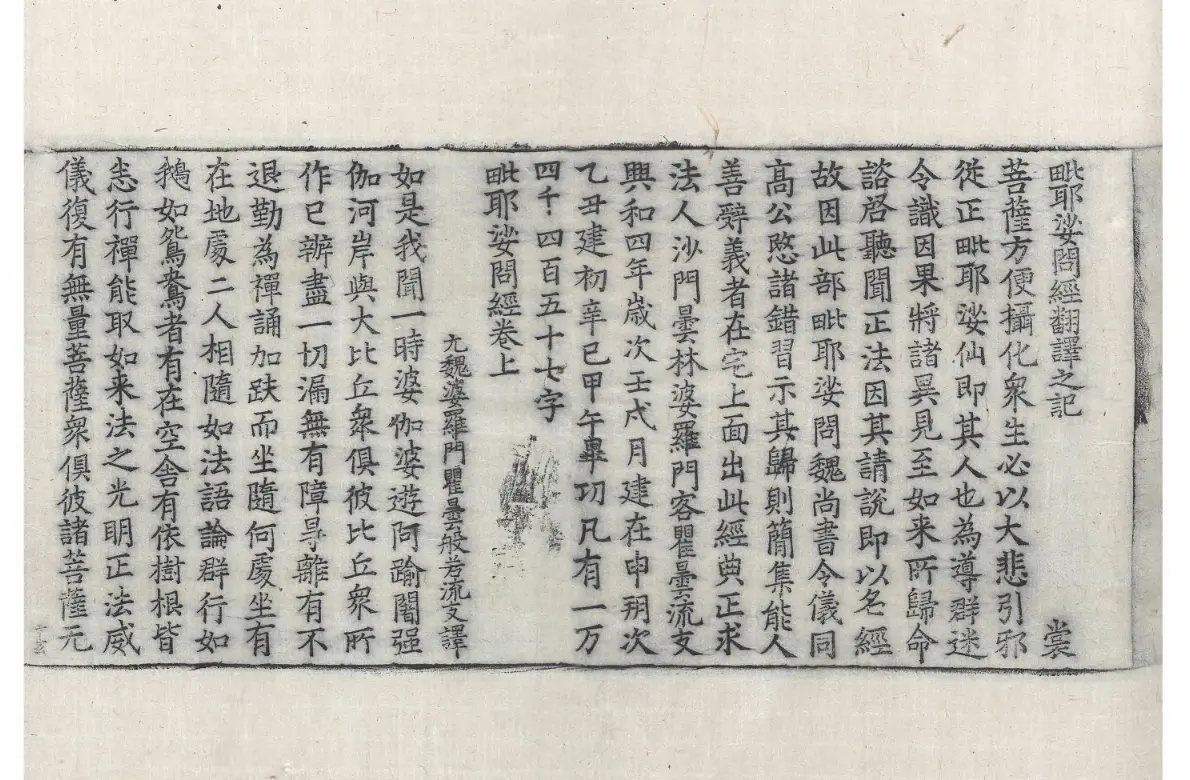 毗耶娑問經翻譯之記 裳
菩薩方便攝化衆生必以大悲引邪
從正毗耶娑仙即其人也為導群迷
令識因果將諸異見至如来所歸命
諮啓聽聞正法因其請說即以名經
故因此部毗耶娑問魏尚書令儀同
髙公愍諸錯習示其歸則簡集能人
善辭義者在宅上面出此經典正求
法人沙門曇林婆羅門客瞿曇流支
興和四年歳次壬戌月建在申朔次
乙丑建初辛巳甲午畢功凡有一万
四千四百五十七字
毗耶娑問經卷上
元魏婆羅門瞿曇般若流支譯
如是我聞一時婆伽婆遊阿踰闍强
伽河岸與大比丘衆俱彼比丘衆所
作已辦盡一切漏無有障㝵離有不
退勤為禪誦加趺而坐隨何處坐有
在地處二人相隨如法語論群行如
鵝如鴛鴦者有在空舍有依樹根皆
悉行禪能取如来法之光明正法威
儀復有無量菩薩衆俱彼諸菩薩元